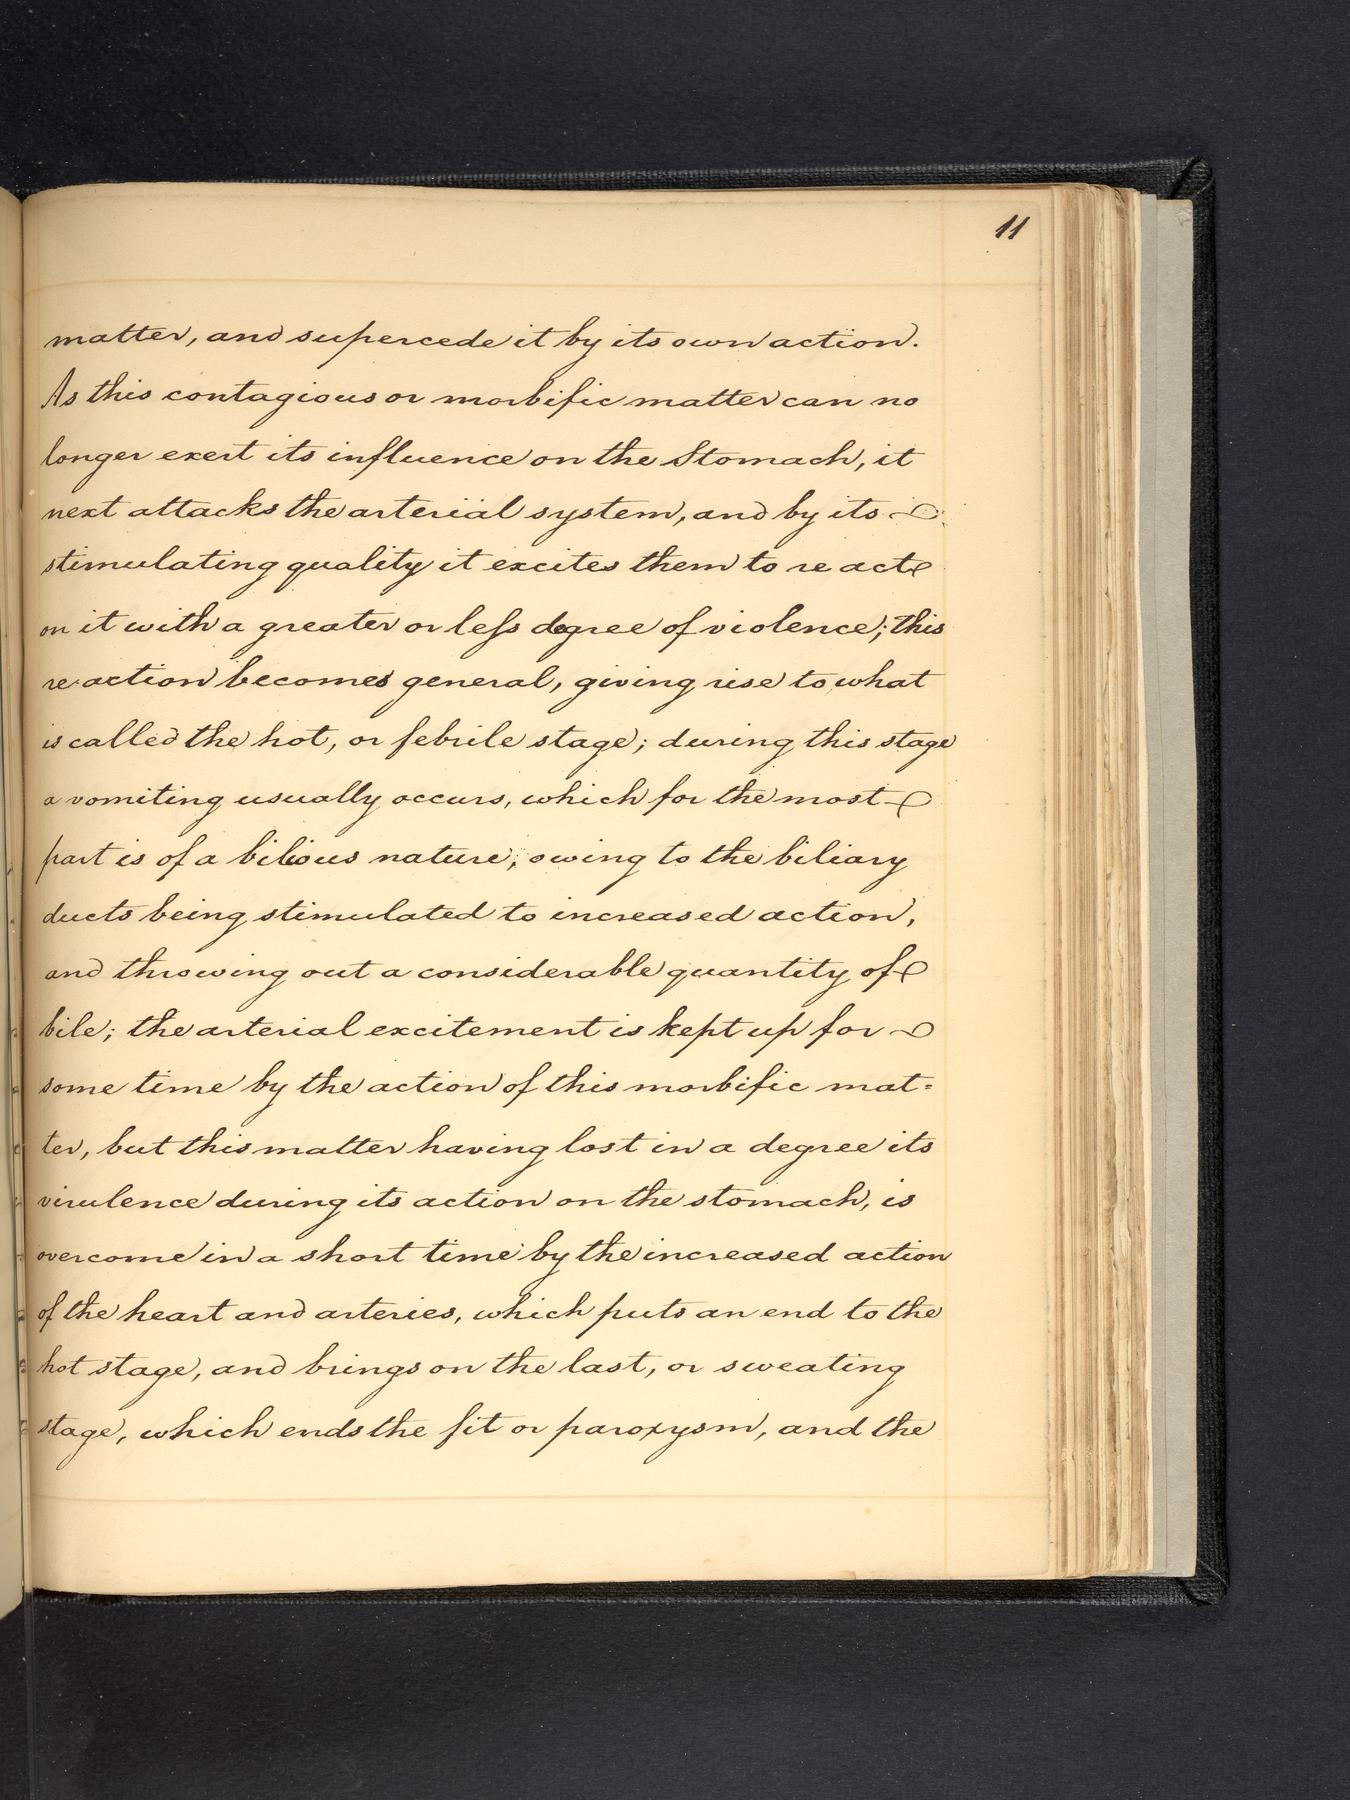 11
matter, and supercede it by its own action.
As this contagious or morbific matter can no
longer exert its influence on the Stomach, it
next attacks the arterial system, and by its
stimulating quality it excites them to re act
on it with a greater or leſs degree of violence; this
re-action becomes general, giving rise to what
is called the hot, or febrile stage; during this stage
a vomiting usually occurs, which for the most
part is of a bilious nature, owing to the biliary
ducts being stimulated to increased action,
and throwing out a considerable quantity of
bile; the arterial excitement is kept up for
some time by the action of this morbific mat=
ter, but this matter having lost in a degree its
virulence during its action on the stomach, is
overcome in a short time by the increased action
of the heart and arteries, which puts an end to the
hot stage, and brings on the last, or sweating
stage, which ends the fit or paroxysm, and the